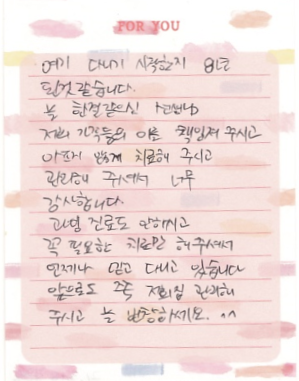 FOR YOU
여기 다니기 시작한지 8년
된것 같습니다.
늘 한결같으신
저희 가족들의 이를 책임져 주시고
아프지 않게 치료해 주시고
관리해 주셔서 너무
감사합니다.
과잉 진료도 안하시고
꼭 필요한 치료만 해주셔서
언제나 믿고 다니고 있습니다
앞으로도 쭉 저희집 관리해
주시고 늘 번창하세요. ^^